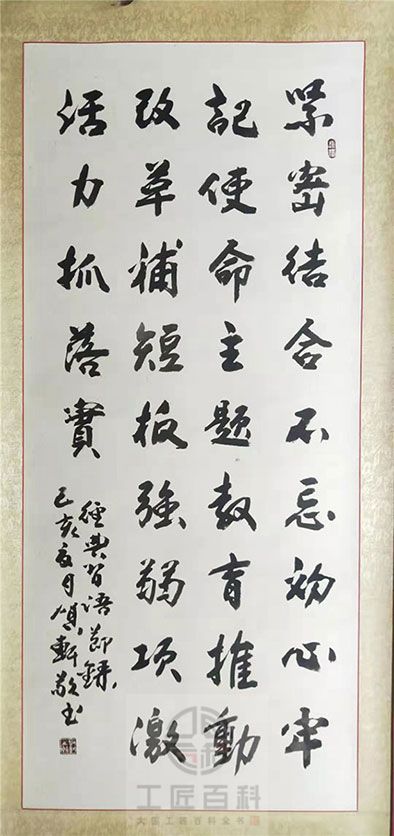 紧密结合不忘初心牢
記使命主题教育推動
改革補短板強弱项激
活力抓落實
經典習語節錄
己亥夏月
敬书
工匠百科
大国工匠百科全书